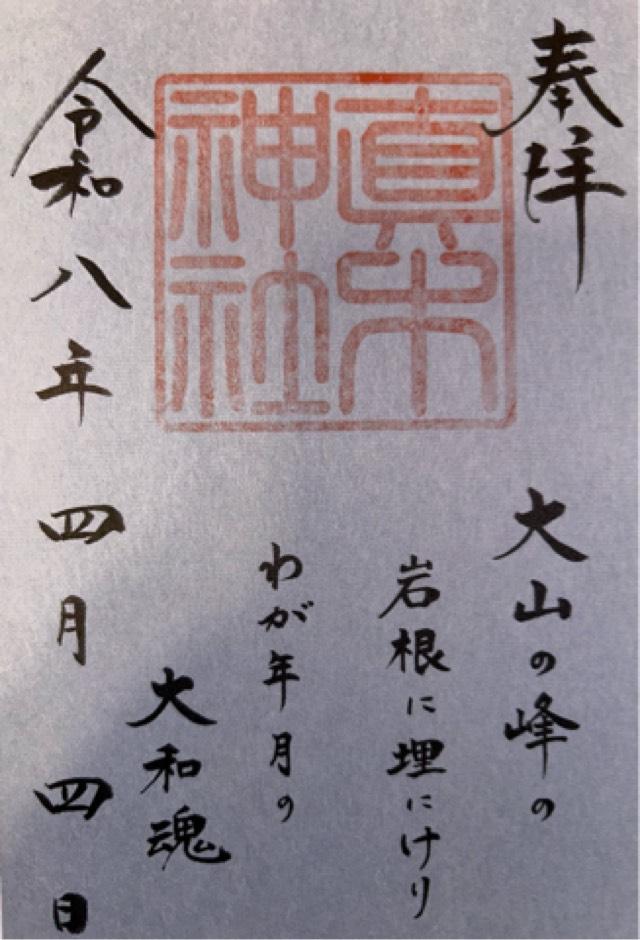 奉拝
眞木
神社
大山の峰の
岩根に埋にけり
わが年月の
大和魂
令和八年四月四日